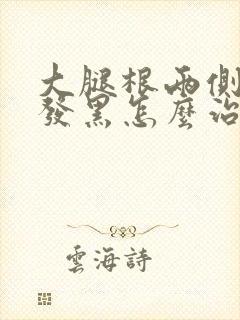 大腿根兩側
發黑怎麼治
雲海詩